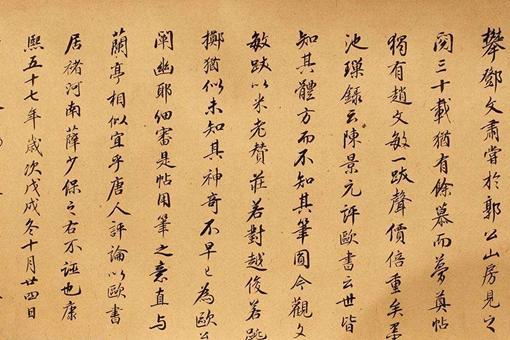 攀鄧文肅嘗於郭公山房見之
閱三十載猶有餘慕而夢奠帖
獨有趙文敏一跋聲價倍重矣墨
池璅錄云陳景元評歐書云世皆
知其體方而不知其筆圓今觀文
敏跋以米老贊莊若對越俊若跳
擲猶似未知其神奇不早已為歐公
闡幽耶細審是帖用筆之意直與
蘭亭相似宜乎唐人評論以歐書
居褚河南薛少保之右不誣也康
熙五十七年歲次戊戌冬十月廿四日